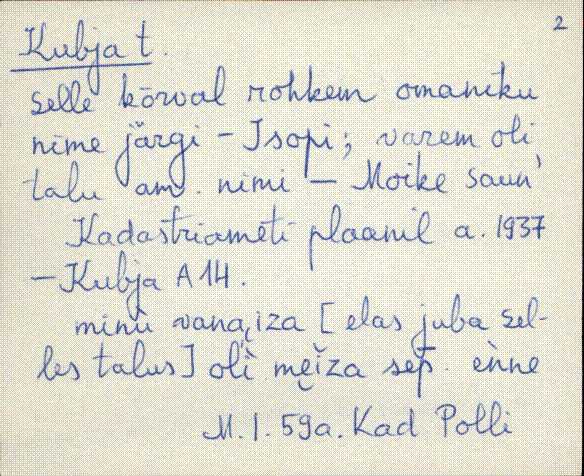 2
Kubja t.
Selle kõrval rohkem omaniku
nime järgi – Isopi; varem oli
talu am. nimi – Moike saun'
Kadastriameti plaanil a. 1937
– Kubja A 14.
minù vana,iza [elas juba sel-
les talus] olì mẹĭza sep̄. ènne
M. I. 59a. Kad Polli